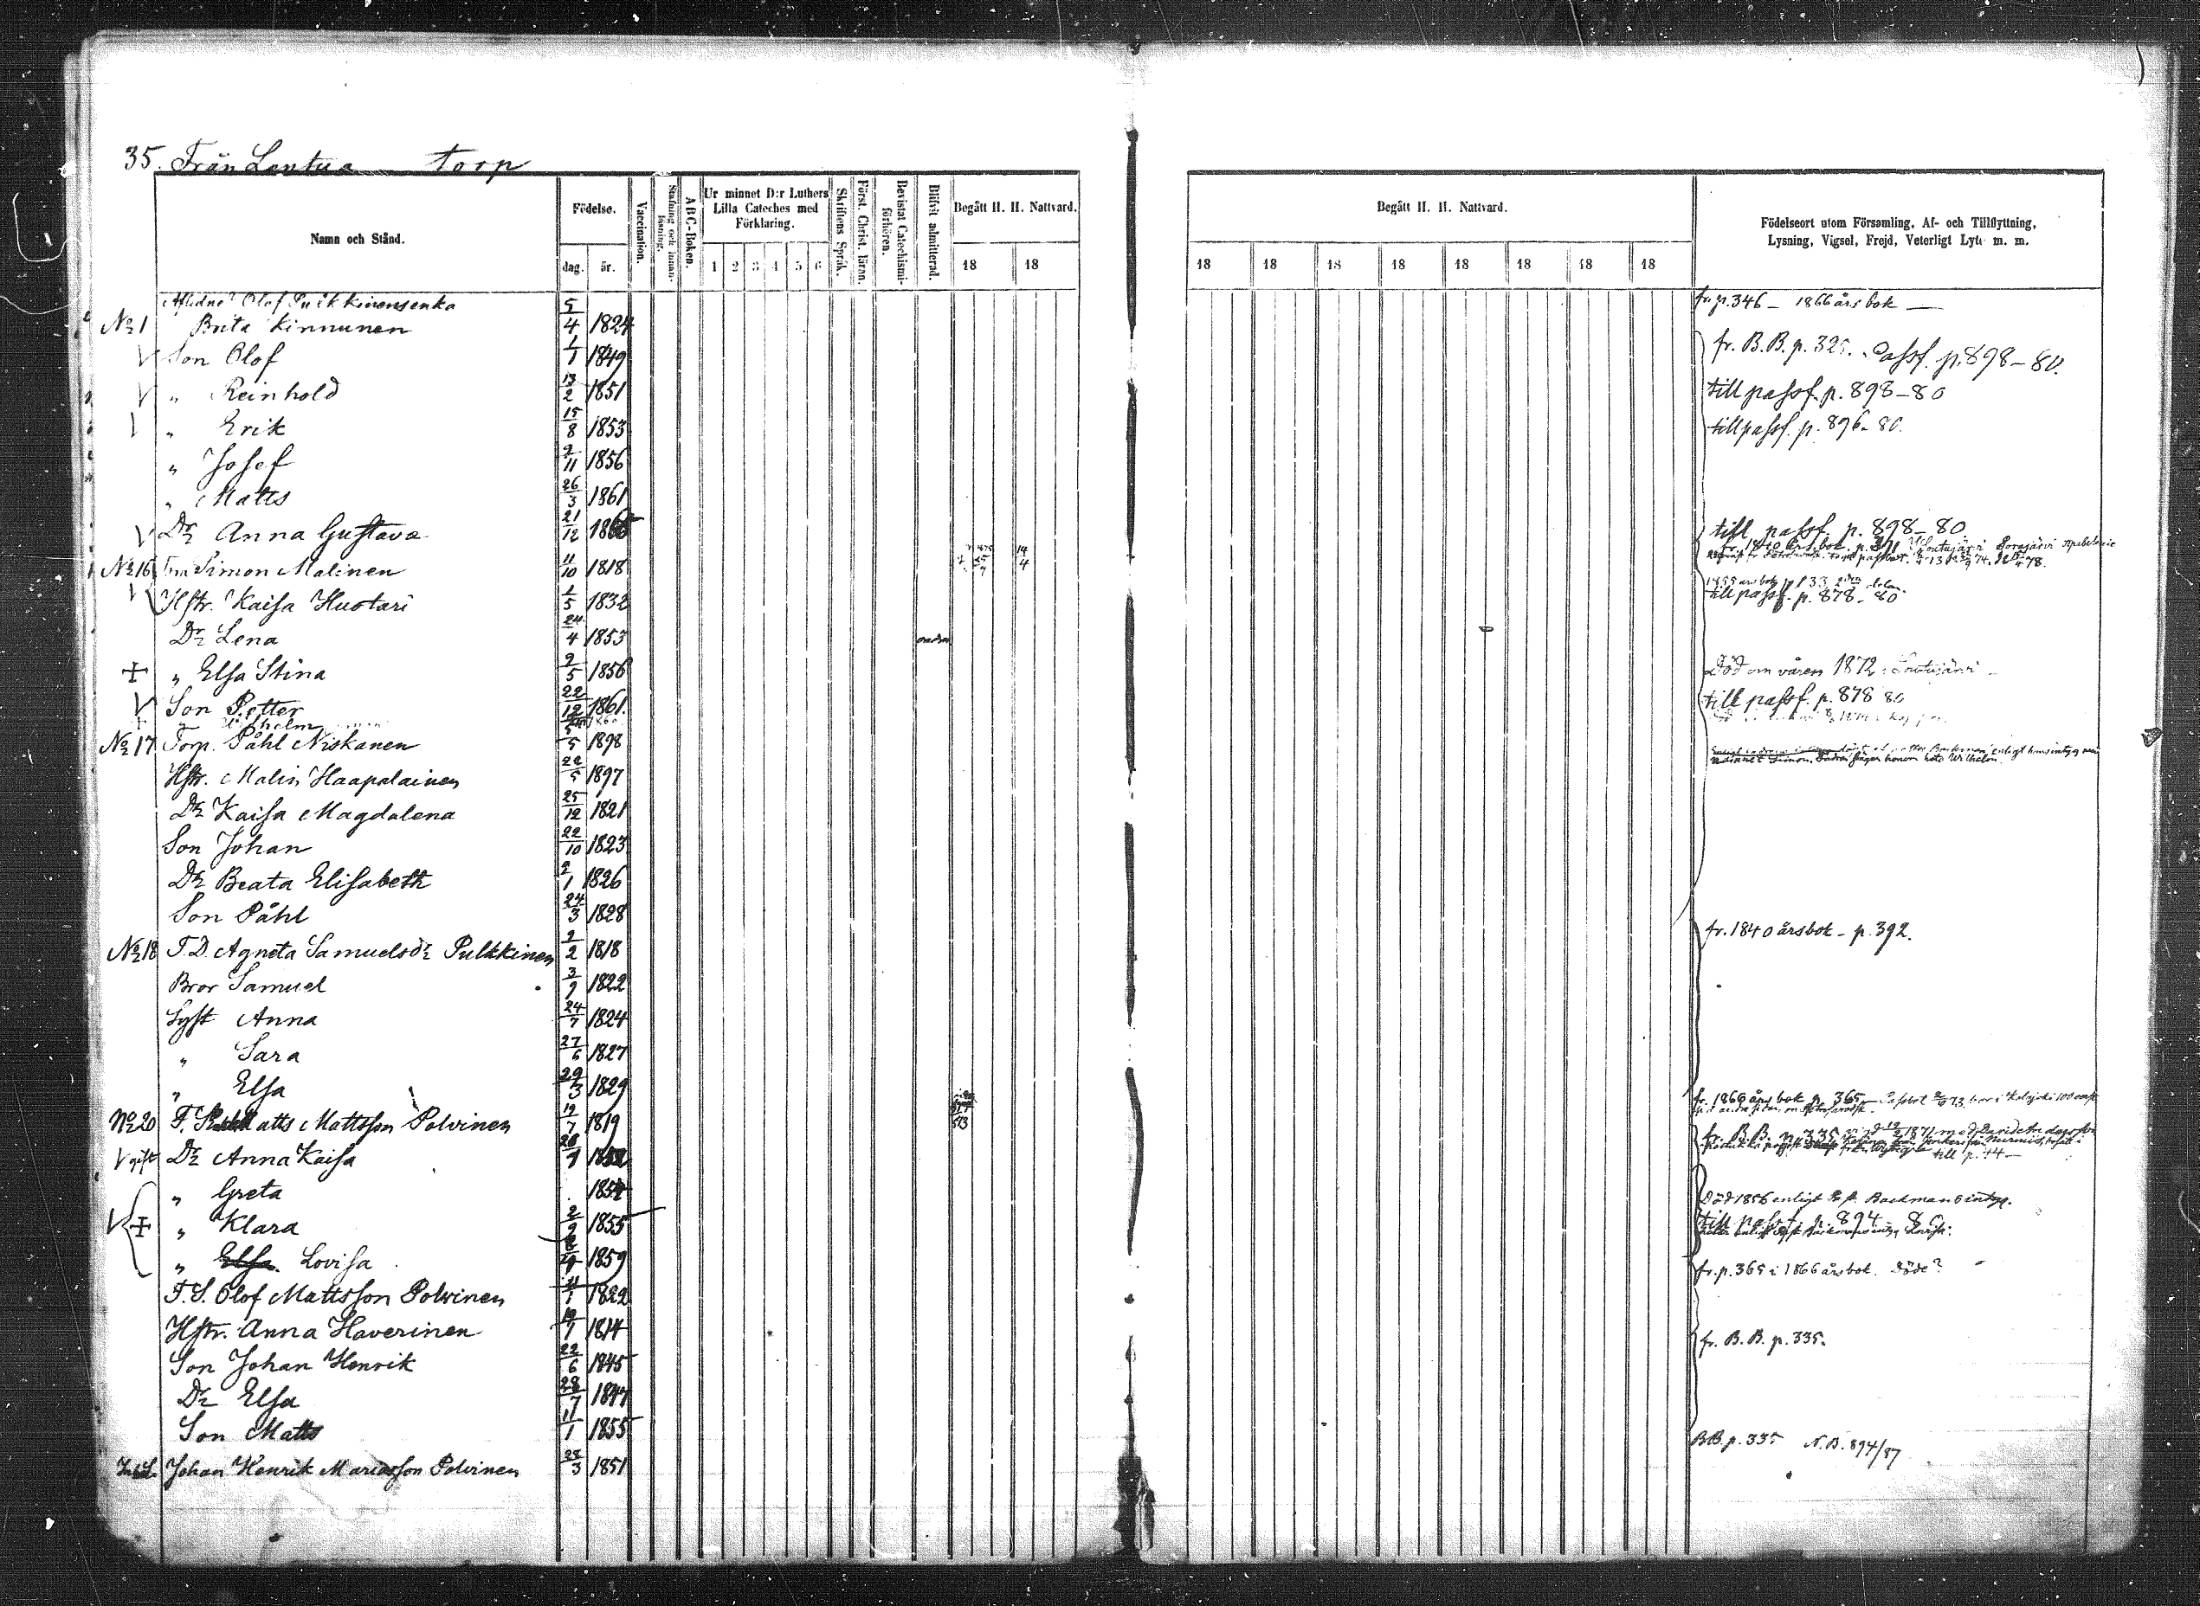 35. Från Lentua torp
Namn och Stånd.
Födelse.
dag. år.
Vaccination.
Stafning och innan-läsning.
ABC-Boken.
Ur minnet D:r Luthers Lilla Cateches med Förklaring.
1 2 3 4 5 6
Skriftens Språk.
Först. Christ. läran.
Bevistat Catechismi-förhören.
Blifvit admitterad.
Begått H. H. Nattvard.
18 18
Begått H. H. Nattvard.
18 18 18 18 18 18 18 18
Födelseort utom Församling, Af- och Tillflyttning,
Lysning, Vigsel, Frejd, Veterligt Lyte m. m.
Aflidne Olof enka 5 fr. p. 346 – 1866 års bok —
No 1 Brita Kinnunen 4 1824
Son Olof 1/1 1849 fr. B. B. p. 325. Passf. p. 898–80.
" Reinhold 13/2 1851 till passf. p. 898–80
" Erik 15/8 1853 till passf. p. 896–80.
" Josef 2/11 1856
" Matts 26/3 1861
Dr Anna Gustava 21/12 till passf. p. 898–80
No 16 Simon Malinen 11/10 1818
Hstr. Kaisa Huotari 1/5 1832 till passf. p. 878–80
Dr Lena 24/4 1853
" Elsa Stina 9/5 1856 Död om våren 1872 i
Son Petter 22/12 1861. till passf. p. 878 80
Wilhelm
No 17 Torp. Påhl Niskanen 5/5 1898
Hstr. Malin Haapalainen 22/5 1897
Dr Kaisa Magdalena 25/12 1821
Son Johan 22/10 1823
Dr Beata Elisabeth 2/1 1826
Son Påhl 24/3 1828
No 18 T. D. Agneta Samuelsdr Pulkkinen 2/2 1818 fr. 1840 årsbok – p. 392.
Bror Samuel 3/9 1822
Syst Anna 24/7 1824
" Sara 27/6 1827
" Elsa 29/3 1829
No 20 T. S. Matts Mattsson Polvinen 19/7 1819 fr. 1866 års bok p. 365
V gift Dr Anna Kaisa fr. B. B. p. 335
" Greta 1854 Död 1856 enligt Backmans intyg.
" Klara 2/9 1855 till passf. p. 894–80
" Elsa. Lovisa 1859
T. S. Olof Mattsson Polvinen 1822 fr. p. 365 i 1866 årsbok. Döde?
Hstr. Anna Haverinen 19/7 1814
Son Johan Henrik 22/6 1845 fr. B. B. p. 335.
Dr Elsa 28/7 1847
Son Matts 11/1 1855
Johan Henrik Mariasson Polvinen 23/3 1851 BB. p. 335 N. B. 894/87